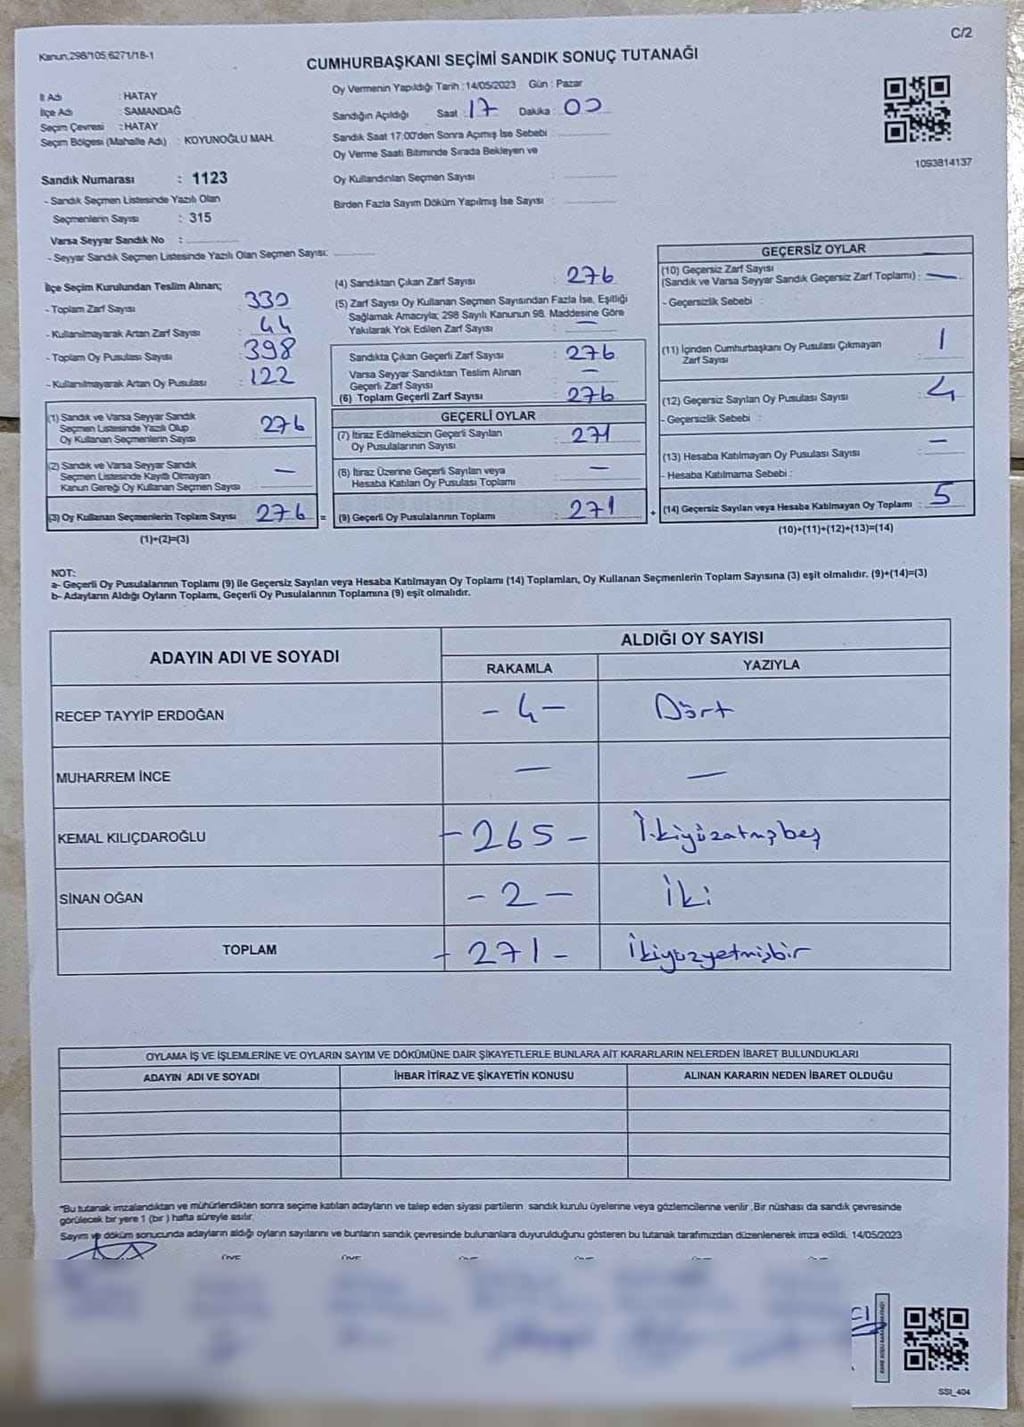 C/2
Kanun,298/105,6271/18-1
CUMHURBAŞKANI SEÇİMİ SANDIK SONUÇ TUTANAĞI
İl Adı : HATAY
İlçe Adı : SAMANDAĞ
Seçim Çevresi : HATAY
Seçim Bölgesi (Mahalle Adı) : KOYUNOĞLU MAH.
Sandık Numarası : 1123
- Sandık Seçmen Listesinde Yazılı Olan
Seçmenlerin Sayısı : 315
Varsa Seyyar Sandık No :
- Seyyar Sandık Seçmen Listesinde Yazılı Olan Seçmen Sayısı:
Oy Vermenin Yapıldığı Tarih : 14/05/2023 Gün : Pazar
Sandığın Açıldığı Saat : 17 Dakika : 00
Sandık Saat 17:00'den Sonra Açımış İse Sebebi
Oy Verme Saati Bitiminde Sırada Bekleyen ve
Oy Kullandırılan Seçmen Sayısı :
Birden Fazla Sayım Döküm Yapılmış İse Sayısı :
1093814137
İlçe Seçim Kurulundan Teslim Alınan;
- Toplam Zarf Sayısı : 330
- Kullanılmayarak Artan Zarf Sayısı : 44
- Toplam Oy Pusulası Sayısı : 398
- Kullanılmayarak Artan Oy Pusulası : 122
(1) Sandık ve Varsa Seyyar Sandık
Seçmen Listesinde Yazılı Olup
Oy Kullanan Seçmenlerin Sayısı : 276
(2) Sandık ve Varsa Seyyar Sandık
Seçmen Listesinde Kayıtlı Olmayan
Kanun Gereği Oy Kullanan Seçmen Sayısı : —
(3) Oy Kullanan Seçmenlerin Toplam Sayısı : 276 =
(1)+(2)=(3)
(4) Sandıktan Çıkan Zarf Sayısı : 276
(5) Zarf Sayısı Oy Kullanan Seçmen Sayısından Fazla İse, Eşitliği
Sağlamak Amacıyla; 298 Sayılı Kanunun 98. Maddesine Göre
Yakılarak Yok Edilen Zarf Sayısı : —
Sandıkta Çıkan Geçerli Zarf Sayısı : 276
Varsa Seyyar Sandıktan Teslim Alınan
Geçerli Zarf Sayısı : —
(6) Toplam Geçerli Zarf Sayısı : 276
GEÇERLİ OYLAR
(7) İtiraz Edilmeksizin Geçerli Sayılan
Oy Pusulalarının Sayısı : 271
(8) İtiraz Üzerine Geçerli Sayılan veya
Hesaba Katılan Oy Pusulası Toplamı : —
(9) Geçerli Oy Pusulalarının Toplamı : 271 +
GEÇERSİZ OYLAR
(10) Geçersiz Zarf Sayısı
(Sandık ve Varsa Seyyar Sandık Geçersiz Zarf Toplamı) : —
- Geçersizlik Sebebi :
(11) İçinden Cumhurbaşkanı Oy Pusulası Çıkmayan
Zarf Sayısı : 1
(12) Geçersiz Sayılan Oy Pusulası Sayısı : 4
- Geçersizlik Sebebi :
(13) Hesaba Katılmayan Oy Pusulası Sayısı : —
- Hesaba Katılmama Sebebi :
(14) Geçersiz Sayılan veya Hesaba Katılmayan Oy Toplamı : 5
(10)+(11)+(12)+(13)=(14)
NOT:
a- Geçerli Oy Pusulalarının Toplamı (9) ile Geçersiz Sayılan veya Hesaba Katılmayan Oy Toplamı (14) Toplamları, Oy Kullanan Seçmenlerin Toplam Sayısına (3) eşit olmalıdır. (9)+(14)=(3)
b- Adayların Aldığı Oyların Toplamı, Geçerli Oy Pusulalarının Toplamına (9) eşit olmalıdır.
ADAYIN ADI VE SOYADI
ALDIĞI OY SAYISI
RAKAMLA YAZIYLA
RECEP TAYYİP ERDOĞAN - 4 - Dört
MUHARREM İNCE — —
KEMAL KILIÇDAROĞLU - 265 - İkiyüzatmışbeş
SİNAN OĞAN - 2 - İki
TOPLAM - 271 - İkiyüzyetmişbir
OYLAMA İŞ VE İŞLEMLERİNE VE OYLARIN SAYIM VE DÖKÜMÜNE DAİR ŞİKAYETLERLE BUNLARA AİT KARARLARIN NELERDEN İBARET BULUNDUKLARI
ADAYIN ADI VE SOYADI İHBAR İTİRAZ VE ŞİKAYETİN KONUSU ALINAN KARARIN NEDEN İBARET OLDUĞU
"Bu tutanak imzalandıktan ve mühürlendikten sonra seçime katılan adayların ve talep eden siyasi partilerin sandık kurulu üyelerine veya gözlemcilerine verilir. Bir nüshası da sandık çevresinde
görülecek bir yere 1 (bir) hafta süreyle asılır.
Sayım ve döküm sonucunda adayların aldığı oyların sayılarını ve bunların sandık çevresinde bulunanlara duyurulduğunu gösteren bu tutanak tarafımızdan düzenlenerek imza edildi. 14/05/2023
SSI_404